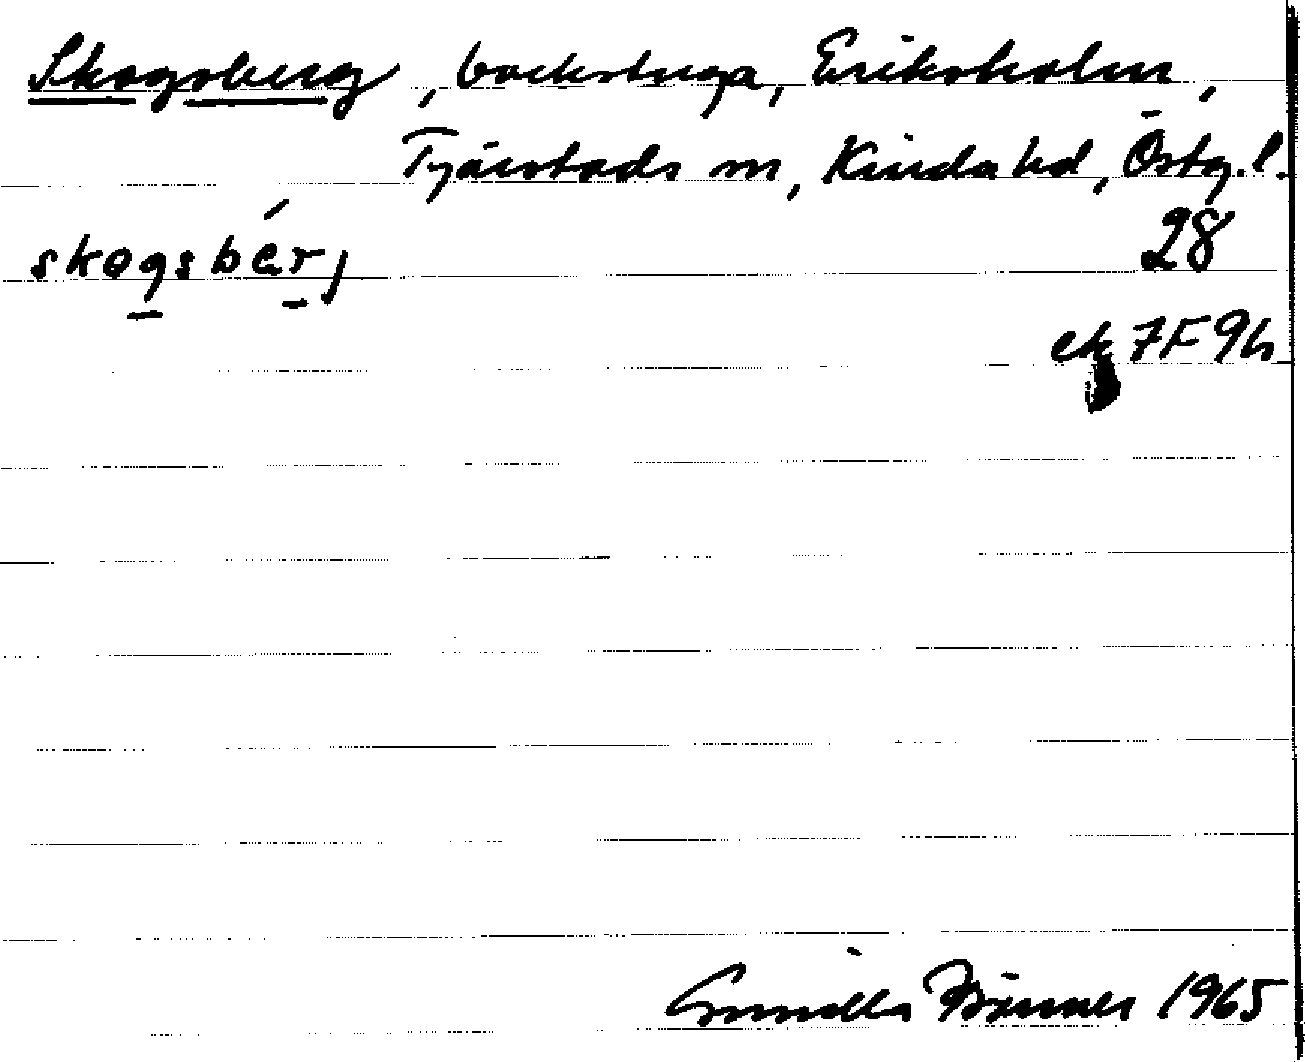 Skogsberg, backstuga, Eriksholm,
Tjärstads sn, Kinda hd, Östg. l.
skogsbärj
28
ek 7F9h
Gunilla 1965